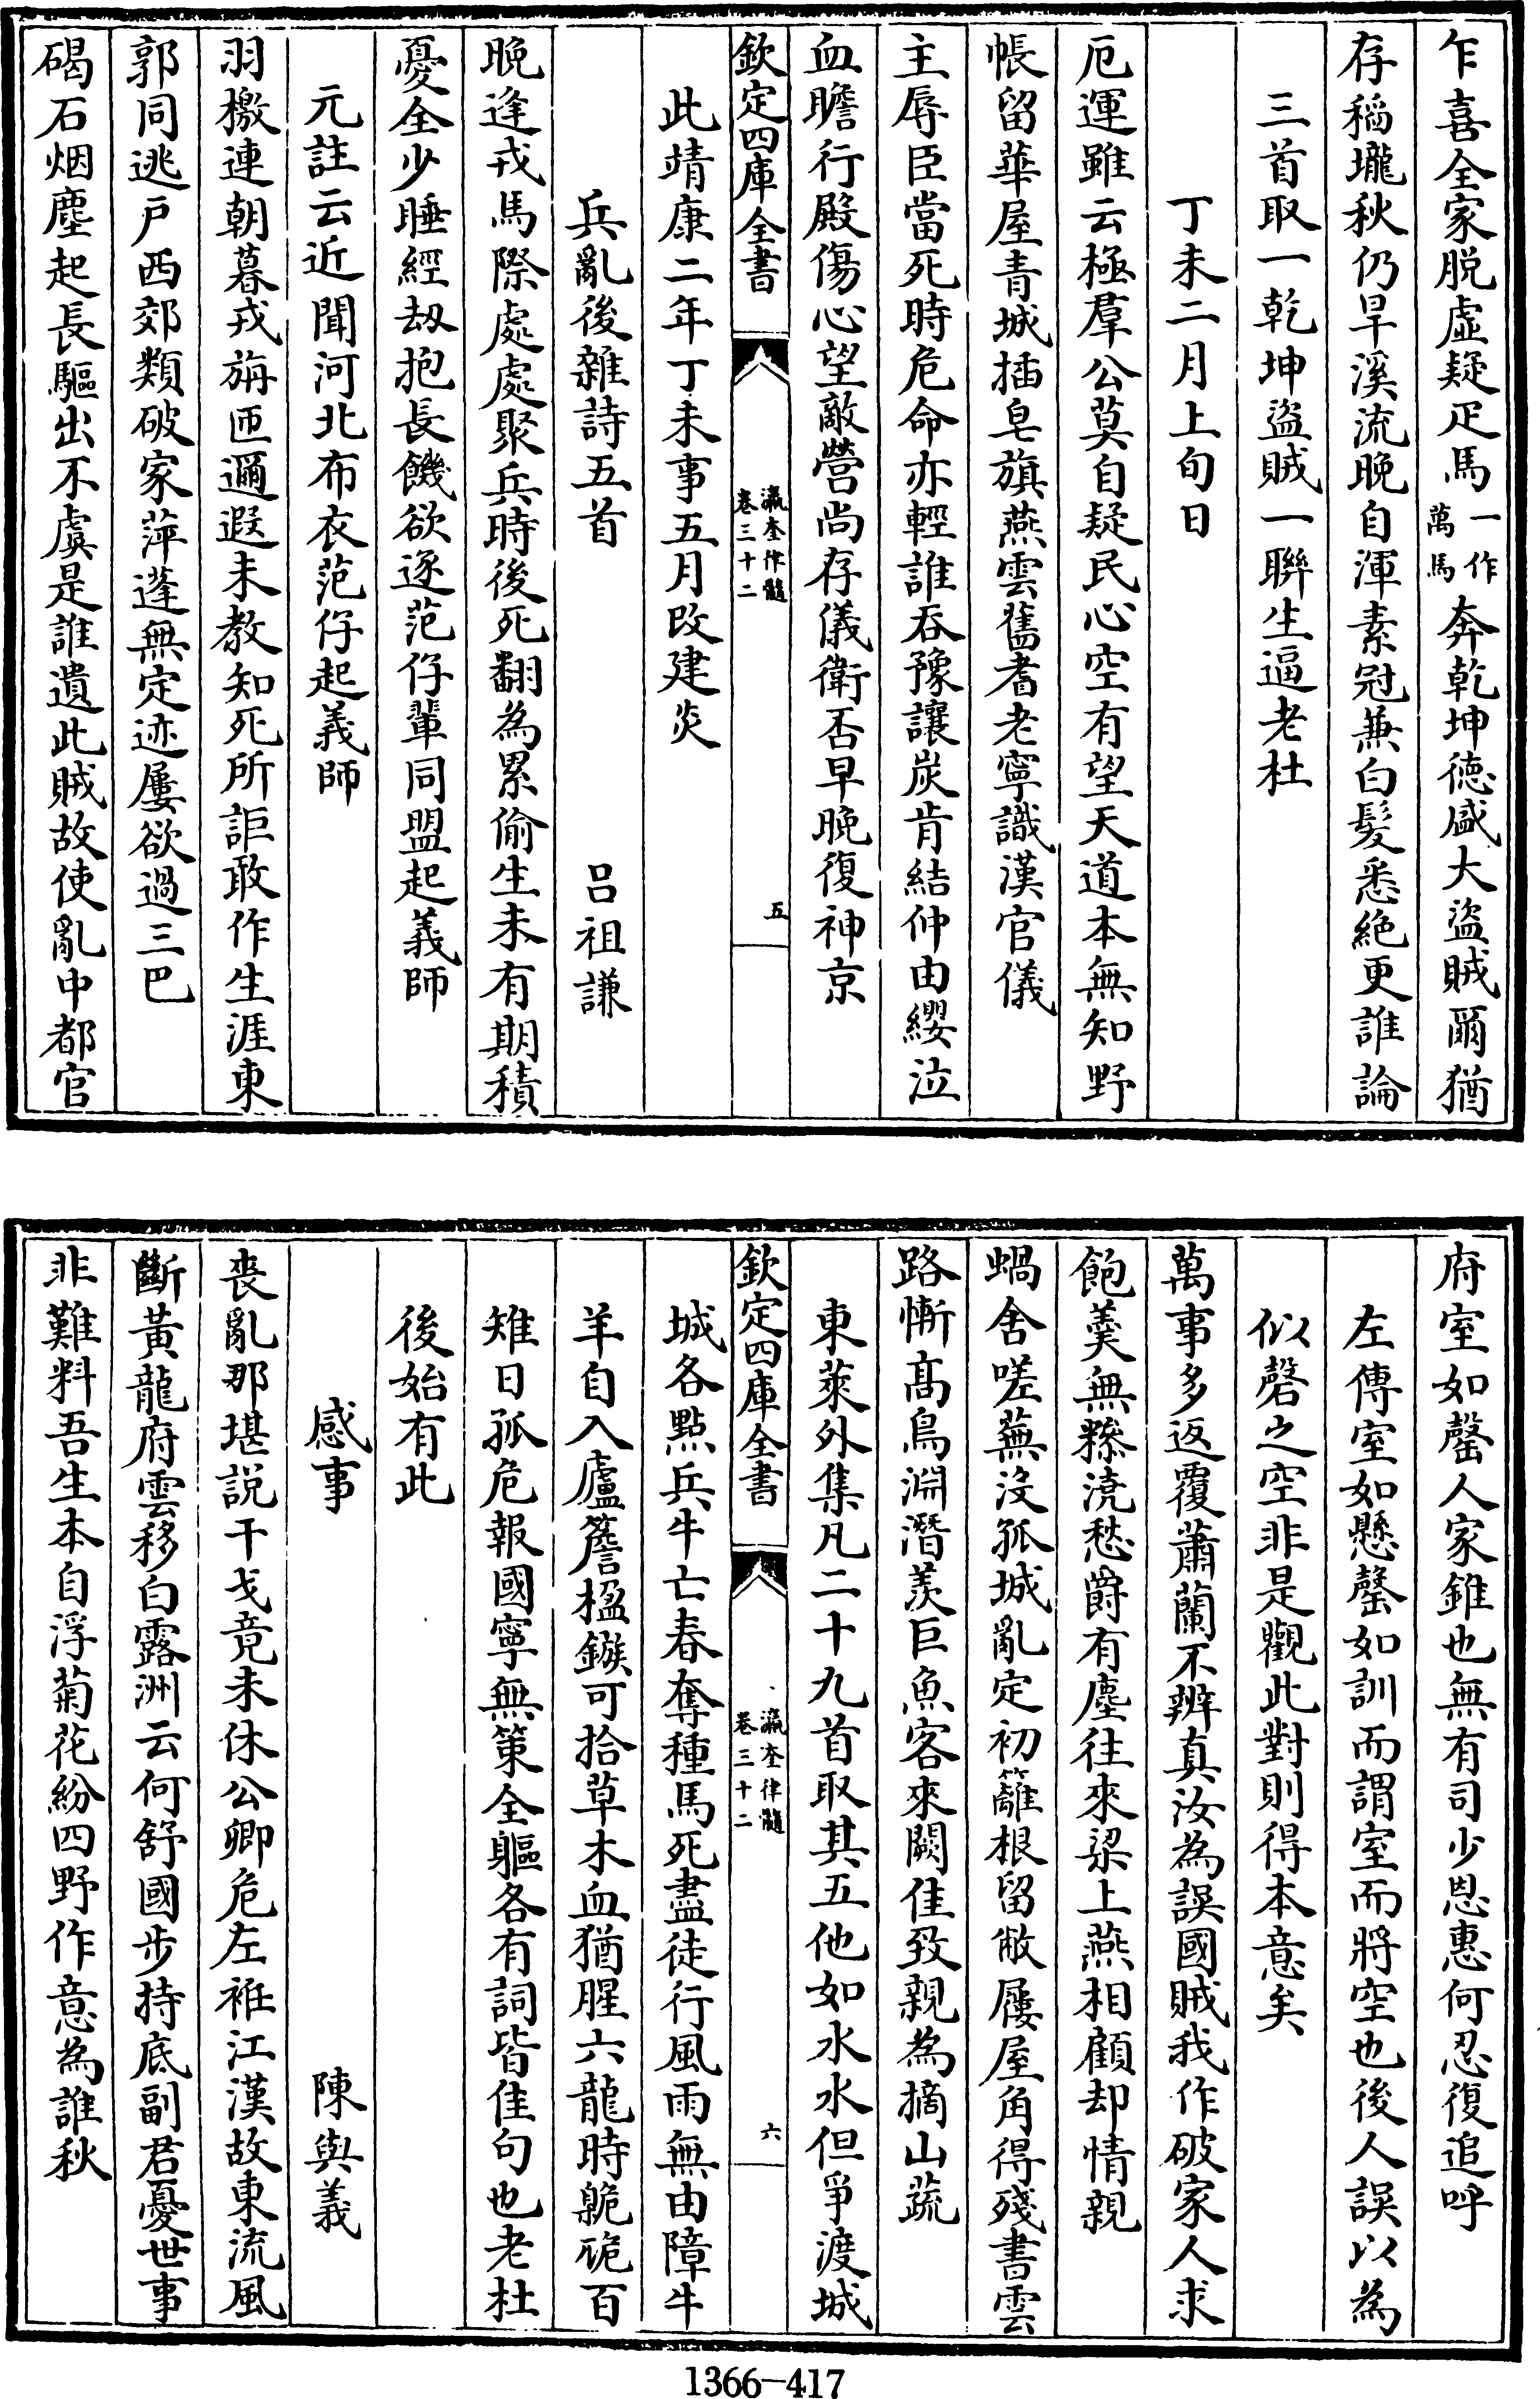 乍喜全家脱虛疑疋馬一作萬馬奔乾坤德盛大盜賊爾猶
存稻壠秋仍旱溪流晚自渾素冠兼白髮悉絶更誰論
三首取一乾坤盜賊一聯生逼老杜
丁未二月上旬日
厄運雖云極羣公莫自疑民心空有望天道本無知野
帳留華屋青城插皂旗燕雲舊耆老寧識漢官儀
主辱臣當死時危命亦輕誰吞豫讓炭肯結仲由纓泣
血瞻行殿傷心望敵營尚存儀衛否早晚復神京
欽定四庫全書
瀛奎律髓
卷三十二
五
此靖康二年丁未事五月改建炎
兵亂後雜詩五首 吕祖謙
晚逢戎馬際處處聚兵時後死翻為累偷生未有期積
憂全少睡經刼抱長饑欲逐范仔輩同盟起義師
元註云近聞河北布衣范仔起義師
羽檄連朝暮戎旃匝邇遐未教知死所詎敢作生涯東
郭同逃户西郊類破家萍蓬無定迹屢欲過三巴
碣石烟塵起長驅出不虞是誰遺此賊故使亂中都官
府室如罄人家錐也無有司少恩惠何忍復追呼
左傳室如懸罄如訓而謂室而將空也後人誤以為
似磬之空非是觀此對則得本意矣
萬事多返覆蕭蘭不辨真汝為誤國賊我作破家人求
飽羮無糝澆愁爵有塵往來梁上燕相顧却情親
蝸舍嗟蕪没孤城亂定初籬根留敝屨屋角得殘書雲
路慚髙鳥淵潛羡巨魚客來闕佳致親為摘山蔬
東萊外集凡二十九首取其五他如水水但爭渡城
欽定四庫全書
瀛奎律髓
卷三十二
六
城各點兵牛亡春奪種馬死盡徒行風雨無由障牛
羊自入廬簷楹鏃可拾草木血猶腥六龍時臲卼百
雉日孤危報國寧無策全軀各有詞皆佳句也老杜
後始有此
感事 陳與義
喪亂那堪説干戈竟未休公卿危左衽江漢故東流風
斷黃龍府雲移白露洲云何舒國步持底副君憂世事
非難料吾生本自浮菊花紛四野作意為誰秋
1366-417